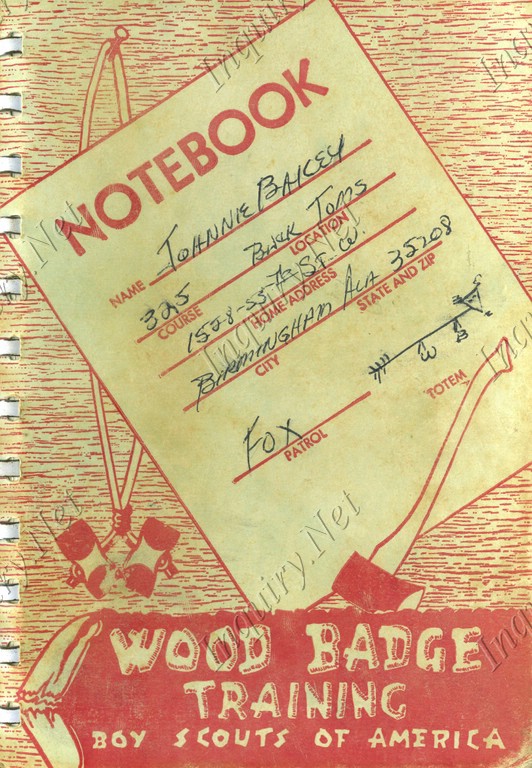 NOTEBOOK
JOHNNIE BAILEY
NAME
325
COURSE
LOCATION
1528-55th ST. W.
HOME ADDRESS
BIRMINGHAM ALA 35208
CITY
STATE AND ZIP
FOX
PATROL
W B
TOTEM
WOOD BADGE
TRAINING
BOY SCOUTS OF AMERICA
Inquiry.Net